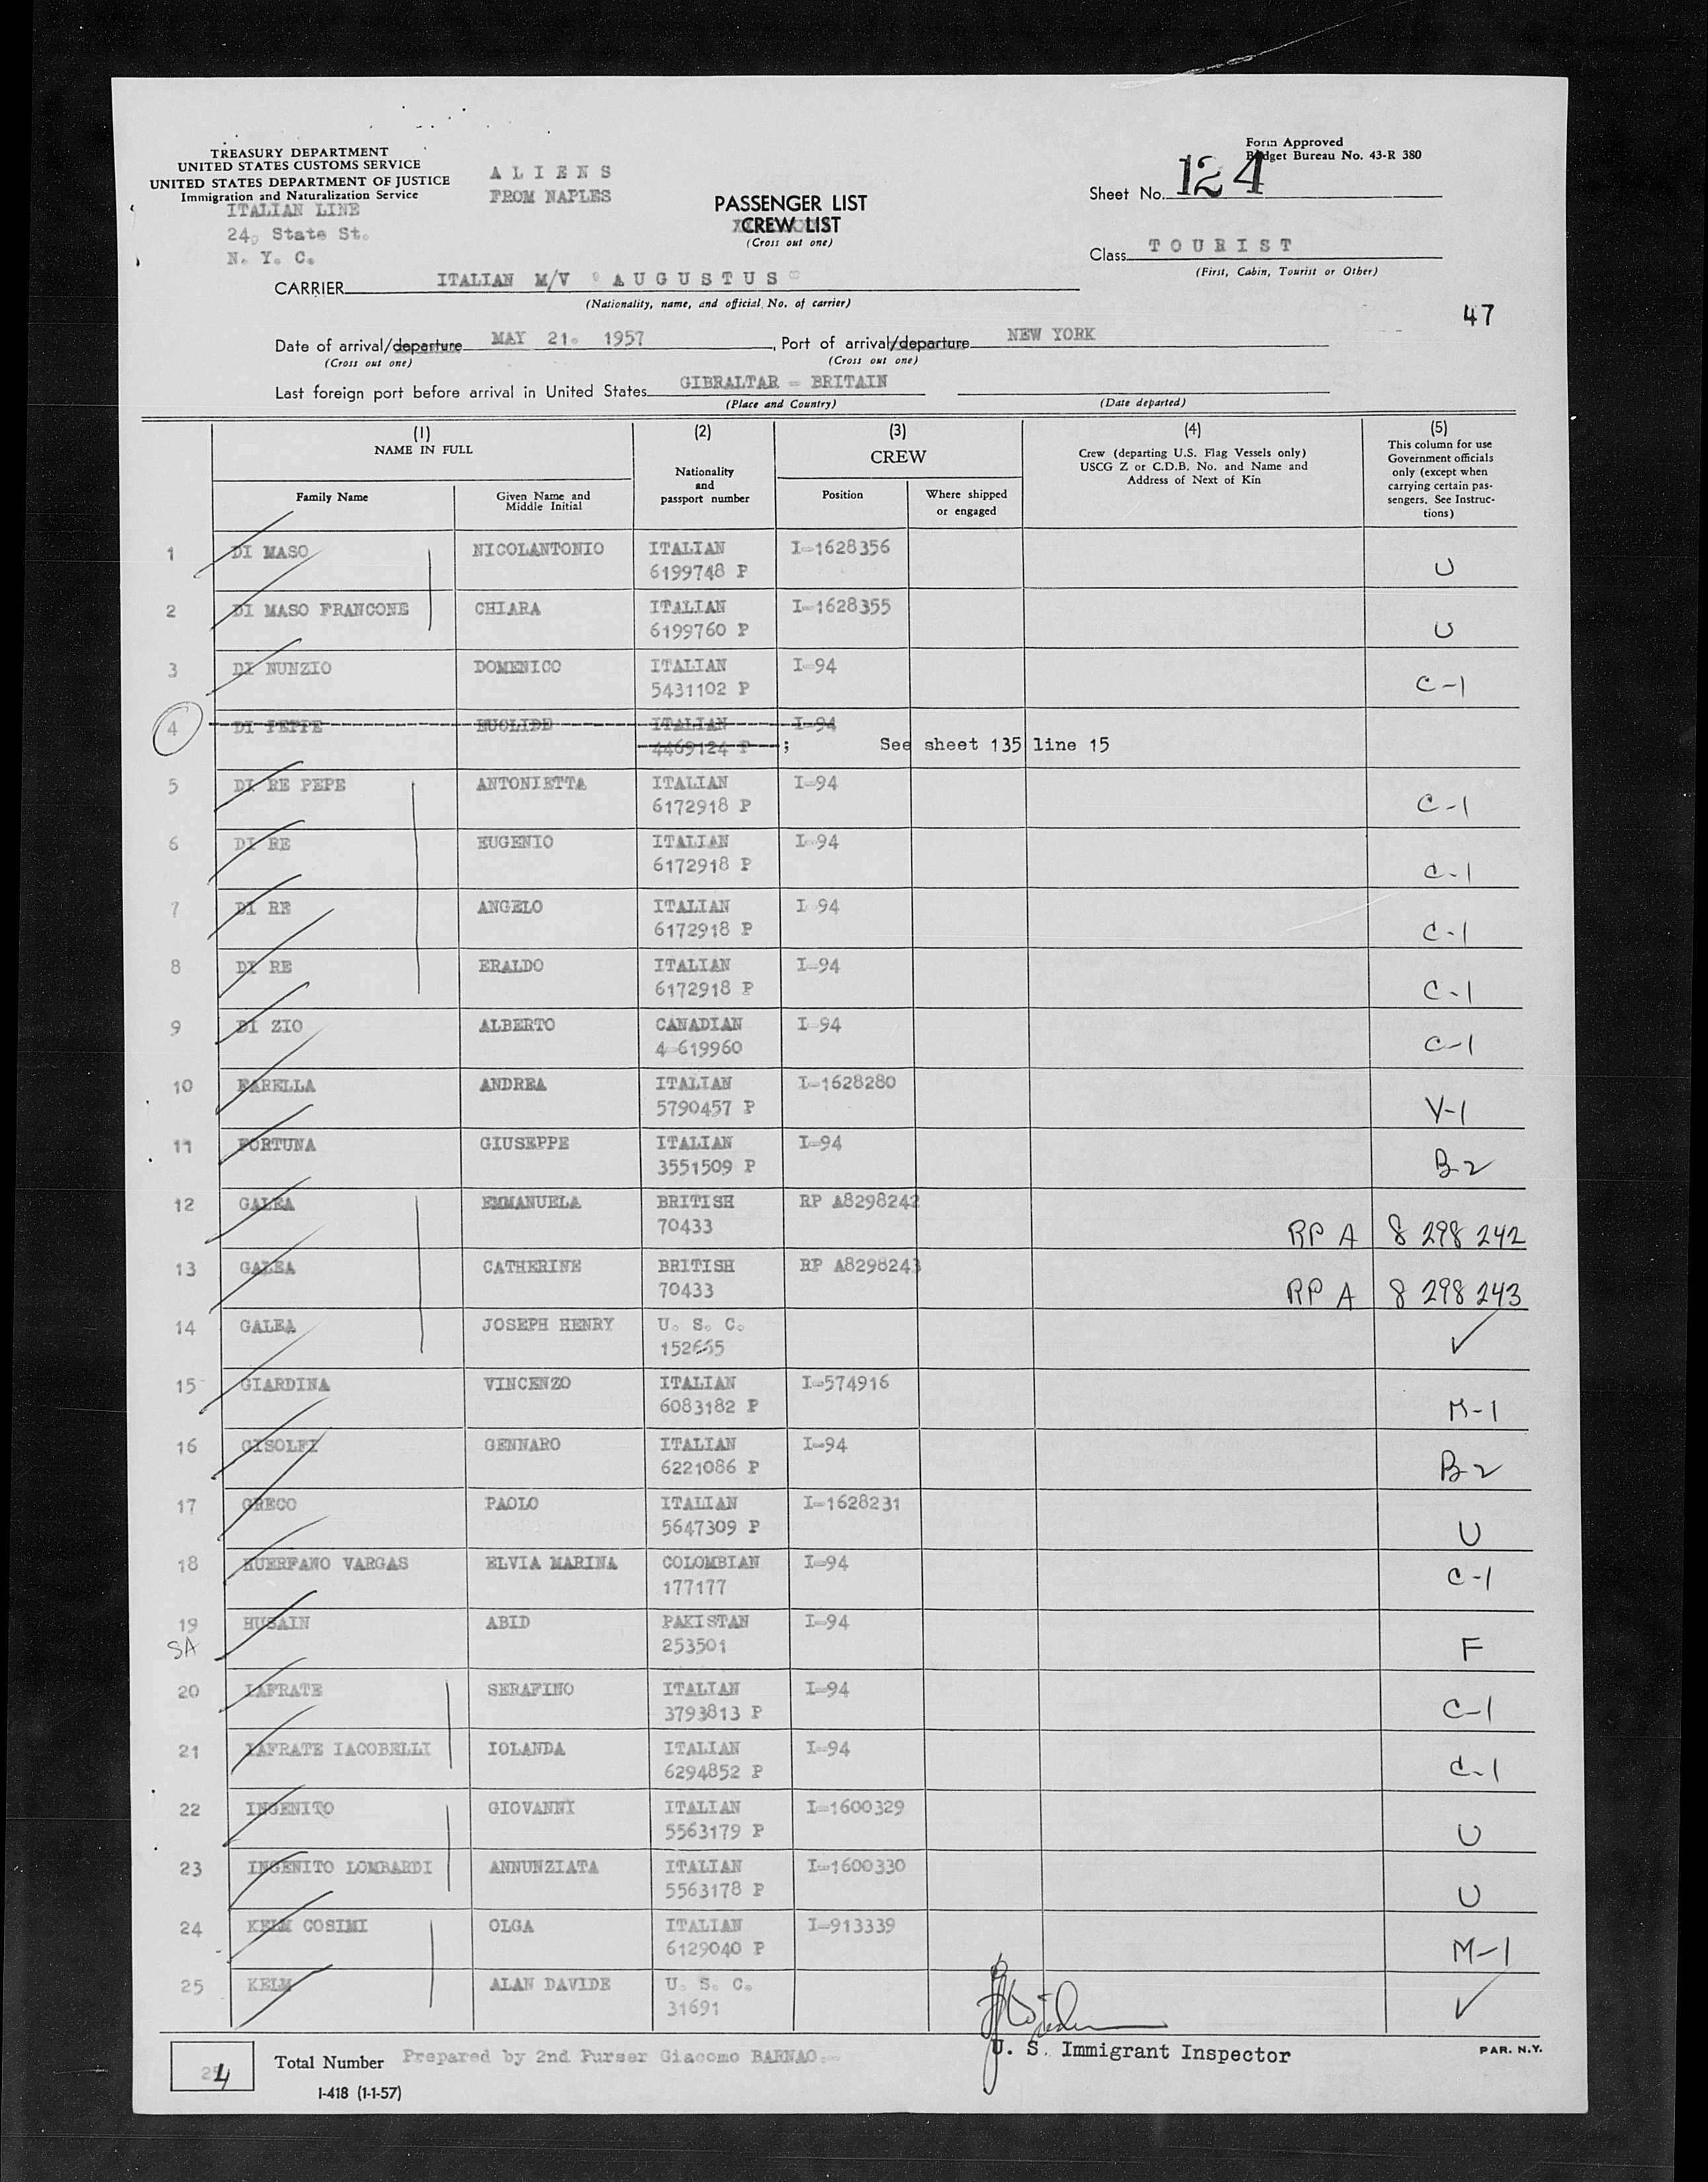 TREASURY DEPARTMENT
UNITED STATES CUSTOMS SERVICE
UNITED STATES DEPARTMENT OF JUSTICE
Immigration and Naturalization Service
ITALIAN LINE
24, State St.
N. Y. C.
A L I E N S
FROM NAPLES
PASSENGER LIST
CREW LIST
(Cross out one)
Form Approved
Budget Bureau No. 43-R 380
Sheet No. 124
Class TOURIST
(First, Cabin, Tourist or Other)
CARRIER ITALIAN M/V "AUGUSTUS"
(Nationality, name, and official No. of carrier)
47
Date of arrival/departure MAY 21. 1957, Port of arrival/departure NEW YORK
(Cross out one) (Cross out one)
Last foreign port before arrival in United States GIBRALTAR - BRITAIN
(Place and Country) (Date departed)
(1) (2) (3) (4) (5)
NAME IN FULL
Family Name
Given Name and Middle Initial
Nationality and passport number
CREW
Position
Where shipped or engaged
Crew (departing U.S. Flag Vessels only)
USCG Z or C.D.B. No. and Name and
Address of Next of Kin
This column for use
Government officials
only (except when
carrying certain pas-
sengers. See Instruc-
tions)
1 DI MASO NICOLANTONIO ITALIAN I-1628356
6199748 P U
2 DI MASO FRANCONE CHIARA ITALIAN I-1628355
6199760 P U
3 DI NUNZIO DOMENICO ITALIAN I-94
5431102 P C-1
4 DI PEPPE EUCLIDE ITALIAN I-94
4469124 P ; See sheet 135 line 15
5 DI RE PEPE ANTONIETTA ITALIAN I-94
6172918 P C-1
6 DI RE EUGENIO ITALIAN I-94
6172918 P C-1
7 DI RE ANGELO ITALIAN I-94
6172918 P C-1
8 DI RE ERALDO ITALIAN I-94
6172918 P C-1
9 DI ZIO ALBERTO CANADIAN I-94
4-619960 C-1
10 FARELLA ANDREA ITALIAN I-1628280
5790457 P V-1
11 FORTUNA GIUSEPPE ITALIAN I-94
3551509 P B-2
12 GALEA EMMANUELA BRITISH RP A8298242
70433 RP A 8 298 242
13 GALEA CATHERINE BRITISH RP A8298243
70433 RP A 8 298 243
14 GALEA JOSEPH HENRY U. S. C.
152665 ✓
15 GIARDINA VINCENZO ITALIAN I-574916
6083182 P M-1
16 GISOLFI GENNARO ITALIAN I-94
6221086 P B-2
17 GRECO PAOLO ITALIAN I-1628231
5647309 P U
18 HUERFANO VARGAS ELVIA MARINA COLOMBIAN I-94
177177 C-1
19 HUSAIN ABID PAKISTAN I-94
SA 253501 F
20 IAFRATE SERAFINO ITALIAN I-94
3793813 P C-1
21 IAFRATE IACOBELLI IOLANDA ITALIAN I-94
6294852 P C-1
22 INGENITO GIOVANNI ITALIAN I-1600329
5563179 P U
23 INGENITO LOMBARDI ANNUNZIATA ITALIAN I-1600330
5563178 P U
24 KELM COSIMI OLGA ITALIAN I-913339
6129040 P M-1
25 KELM ALAN DAVIDE U. S. C.
31691 ✓
24 Total Number Prepared by 2nd Purser Giacomo BARNAO.-
U. S. Immigrant Inspector
PAR. N.Y.
I-418 (1-1-57)